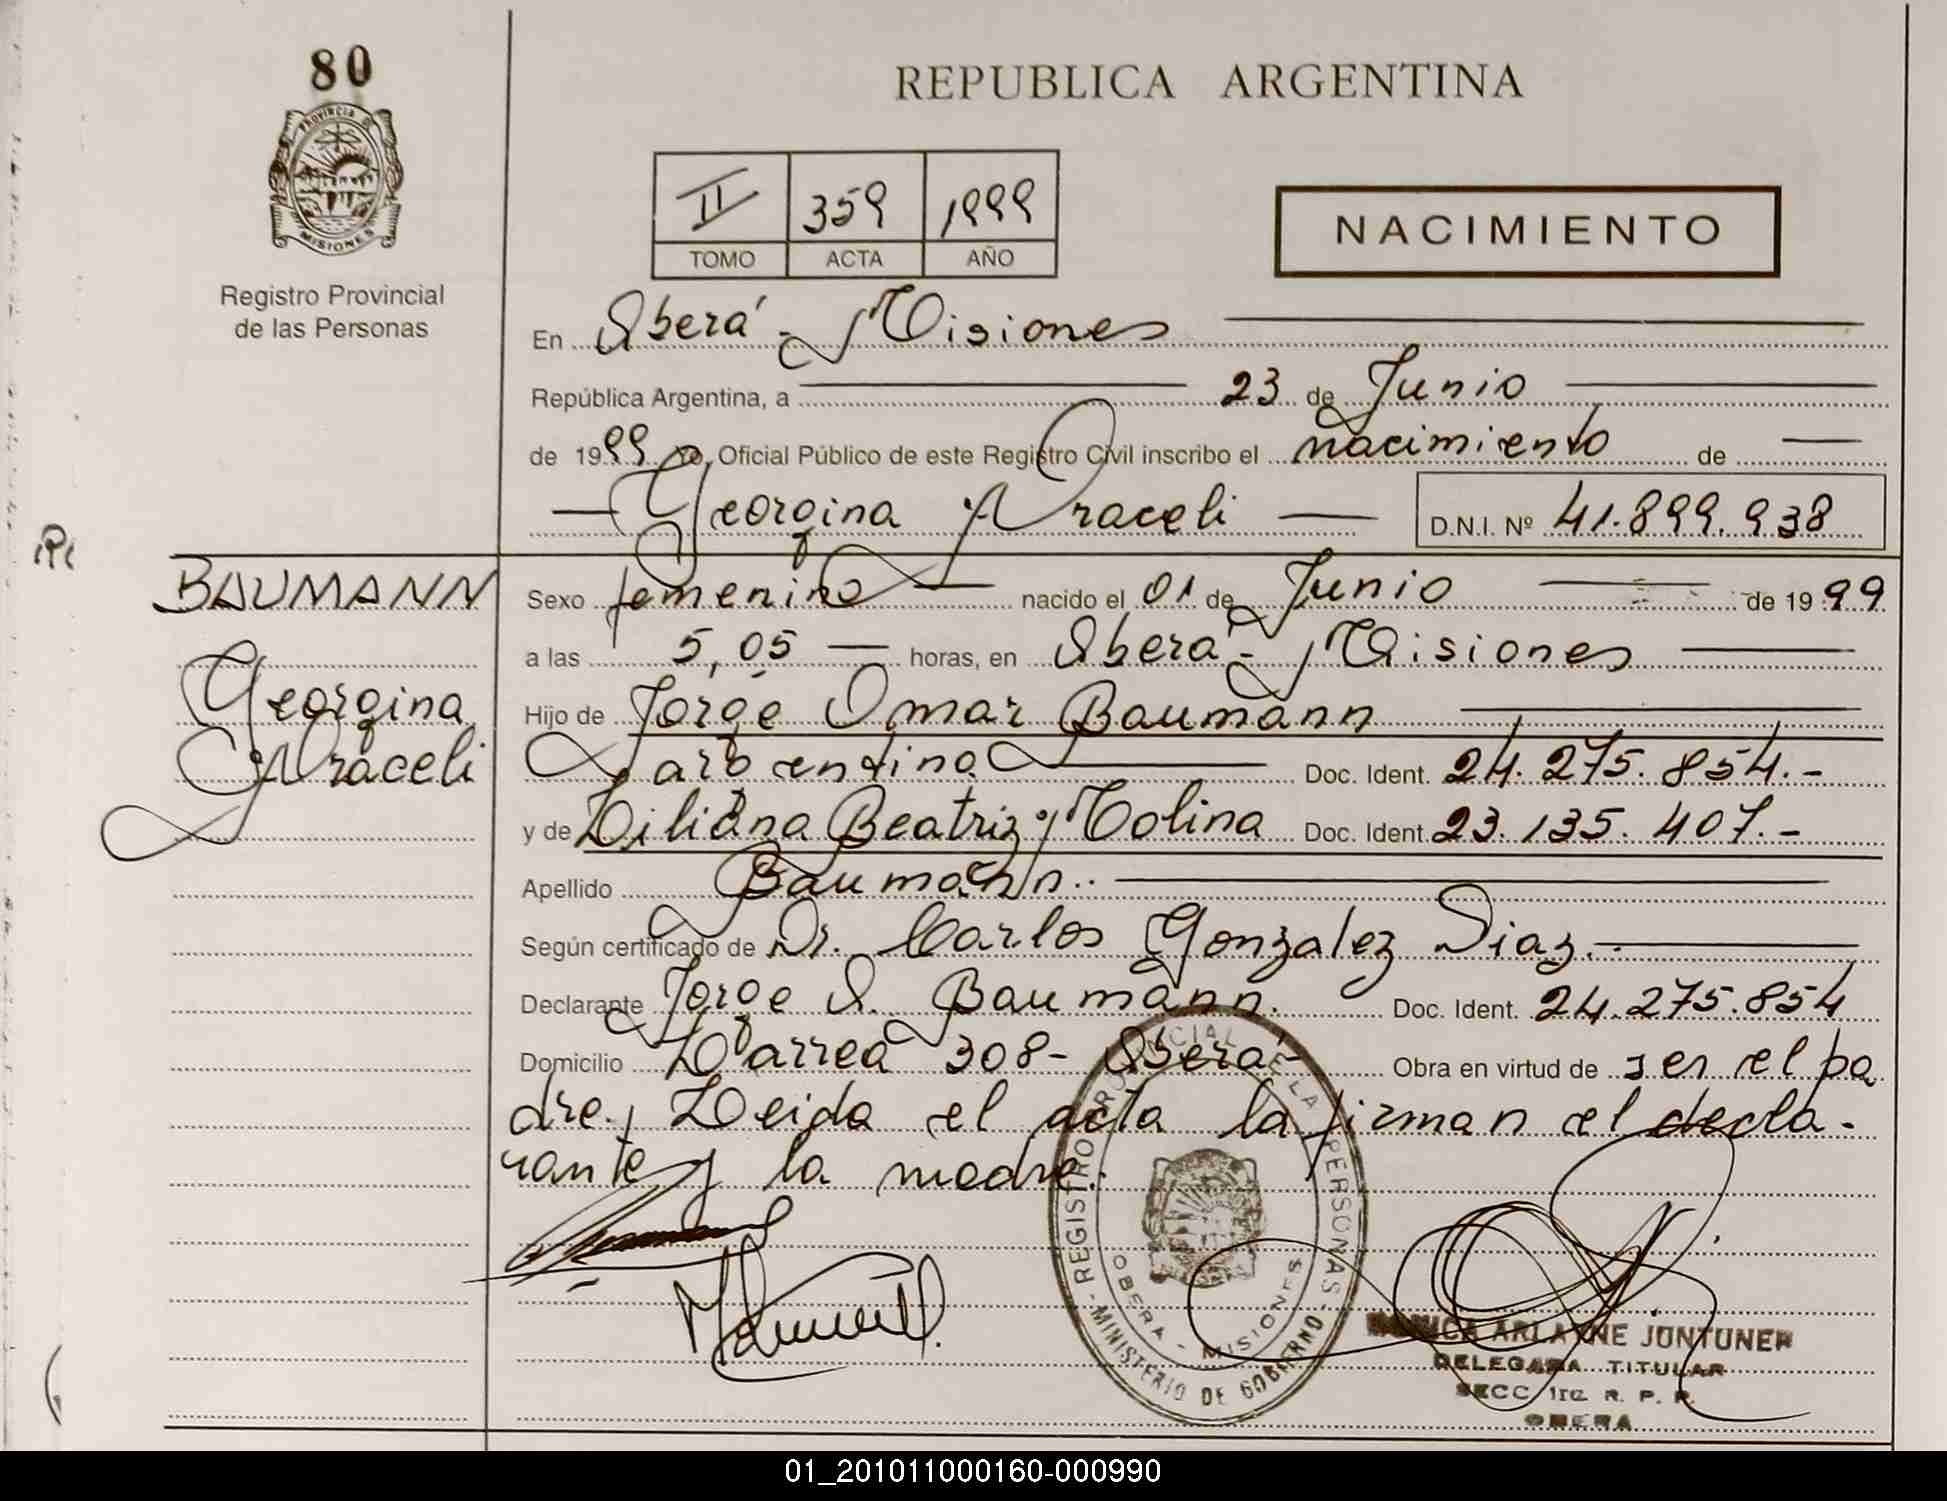 80
PROVINCIA D
MISIONES
Registro Provincial
de las Personas
REPUBLICA ARGENTINA
II 359 1999
TOMO ACTA AÑO
NACIMIENTO
En Oberá - Misiones
República Argentina, a 23 de Junio
de 1999 Yo, Oficial Público de este Registro Civil inscribo el nacimiento de
Georgina Araceli D.N.I. Nº 41.899.938
BAUMANN
Georgina
Araceli
Sexo femenino nacido el 01 de Junio de 1999
a las 5,05 horas, en Oberá - Misiones
Hijo de Jorge Omar Baumann
argentino Doc. Ident. 24.275.854.-
y de Liliana Beatriz Molina Doc. Ident. 23.135.407.-
Apellido Baumann.
Según certificado de Dr. Carlos Gonzalez Diaz.
Declarante Jorge O. Baumann. Doc. Ident. 24.275.854
Domicilio Larrea 308- Oberá- Obra en virtud de ser el pa
dre. Leida el acta la firman el decla-
rante y la madre.
REGISTRO PROVINCIAL DE LA PERSONAS
- MINISTERIO DE GOBIERNO -
OBERA - MISIONES
ARLAYNE JONTUNER
DELEGADA TITULAR
SECC 1ra. R. P. P.
OBERA
01_201011000160-000990